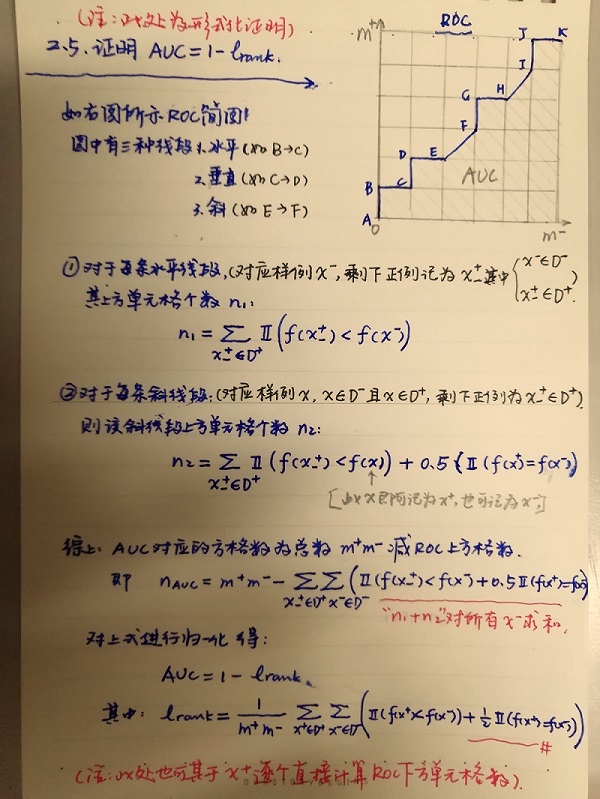 (注：此处为形式化证明)
2.5. 证明 AUC = 1 - lrank.
如右图所示ROC简图：
图中有三种线段 1. 水平 (如 B→C)
2. 垂直 (如 C→D)
3. 斜 (如 E→F)
ROC
m⁺
J K
I
G H
F
D E
AUC
B C
A
0 m⁻
① 对于每条水平线段, (对应样例 x⁻, 剩下正例记为 x₋⁺ 其中 { x⁻∈D⁻ x₋⁺∈D⁺. )
其上方单元格个数 n₁:
n₁ = ∑_{x₋⁺∈D⁺} 𝕀(f(x₋⁺) < f(x⁻))
② 对于每条斜线段: (对应样例 x, x∈D⁻ 且 x∈D⁺, 剩下正例为 x₋⁺∈D⁺)
则该斜线段上方单元格个数 n₂:
n₂ = ∑_{x₋⁺∈D⁺} 𝕀(f(x₋⁺) < f(x)) + 0.5 (𝕀(f(x⁺) = f(x⁻))
[此 x 既可记为 x⁺, 也可记为 x⁻]
综上: AUC对应的方格数为总数 m⁺m⁻ 减ROC上方格数.
即 n_AUC = m⁺m⁻ - ∑_{x₋⁺∈D⁺} ∑_{x⁻∈D⁻} (𝕀(f(x₋⁺) < f(x⁻) + 0.5 𝕀(f(x⁺) = f(x⁻))
"n₁+n₂"对所有 x⁻ 求和.
对上式进行归一化得:
AUC = 1 - lrank.
其中: lrank = 1/(m⁺m⁻) ∑_{x⁺∈D⁺} ∑_{x⁻∈D⁻} (𝕀(f(x⁺) < f(x⁻)) + ½ 𝕀(f(x⁺) = f(x⁻)))
#
(注: 此处也可基于 x⁺ 逐个直接计算ROC下方单元格数).